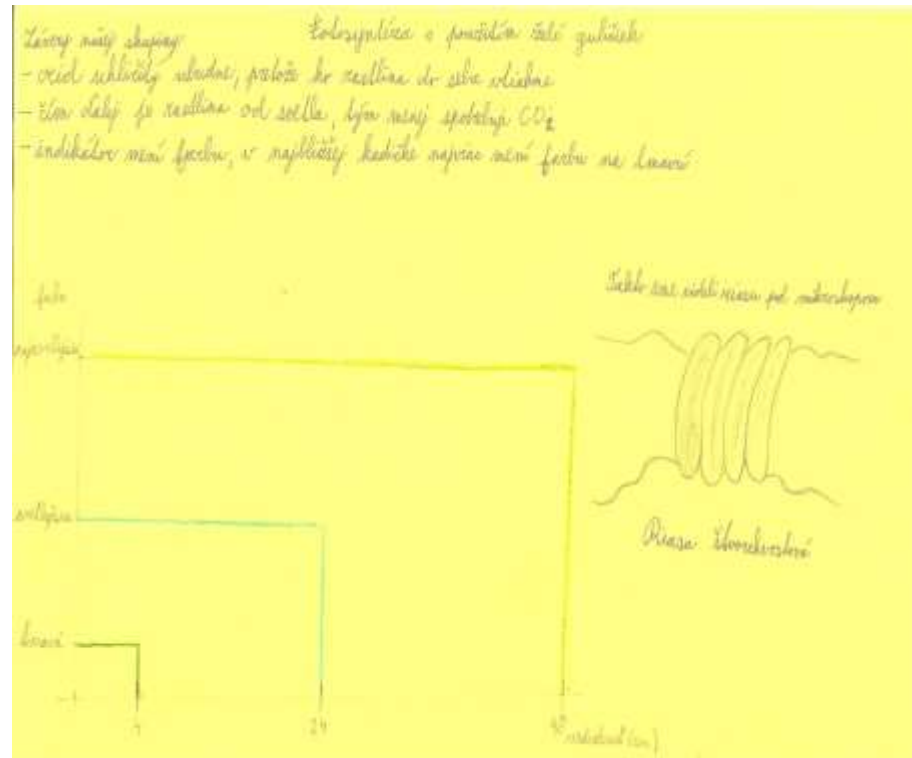 Fotosyntéza s použitím želé guličiek
Závery našej skupiny:
- oxid uhličitý ubudne, pretože ho rastlina do seba vtiahne
- čím ďalej je rastlina od svetla, tým menej spotrebuje CO2
- indikátor mení farbu, v najbližšej kadičke najviac mení farbu na tmavú
farba
najsvetlejšia
svetlejšia
tmavá
24
vzdialenosť (cm)
Takto sme videli riasu pod mikroskopom
Riasa